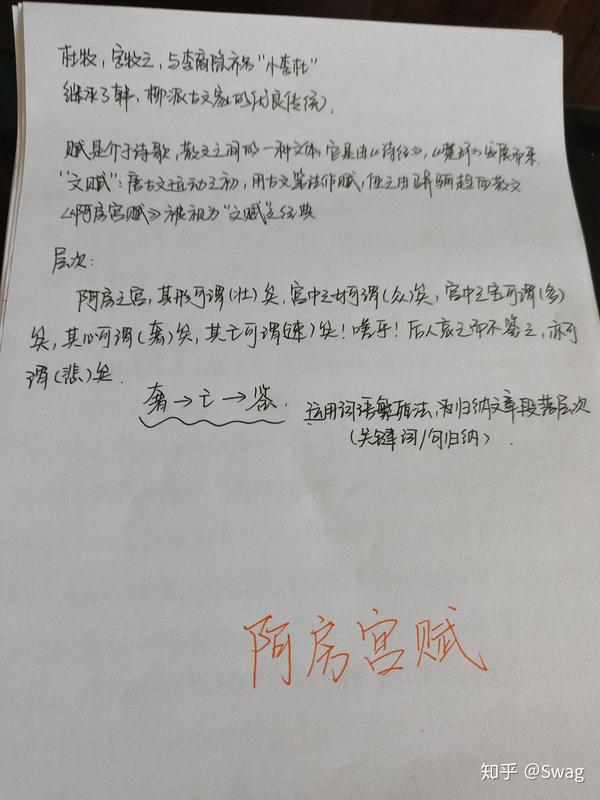 杜牧，字牧之，与李商隐齐名"小李杜"
继承了韩、柳派古文家的优良传统。
赋是介于诗歌，散文之间的一种文体，它是由《诗经》，《楚辞》发展而来
"文赋"：唐古文运动之初，用古文笔法作赋，使之由骈骊趋向散文
《阿房宫赋》被视为"文赋"之经典
层次：
阿房之宫，其形可谓(壮)矣，宫中之女可谓(众)矣，宫中之宝可谓(多)
矣，其心可谓(奢)矣，其亡可谓(速)矣！嗟乎！后人哀之而不鉴之，亦可
谓(悲)矣．
奢→亡→鉴． 运用词语，为归纳文章段落层次
(关键词/句归纳)．
阿房宫赋
知乎 @Swag